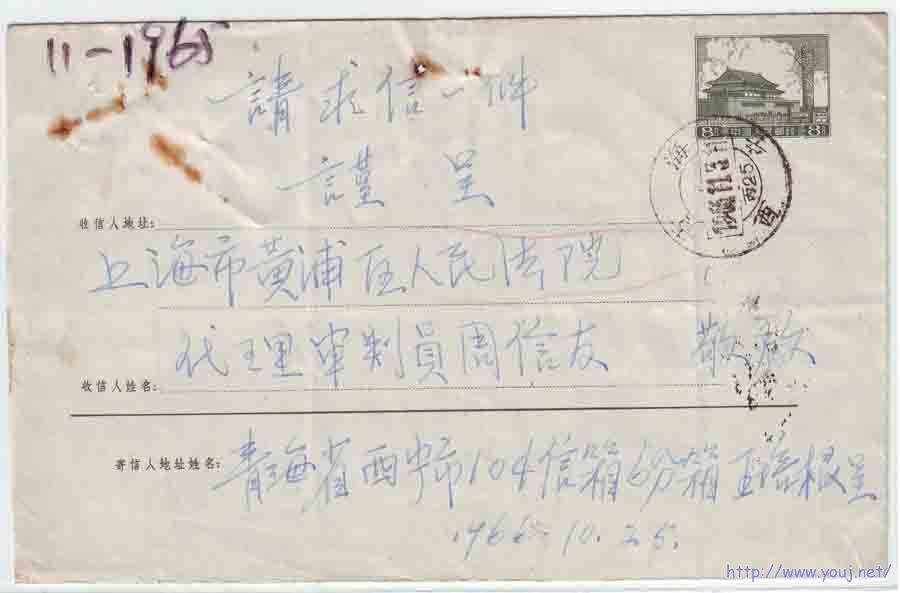 11-1965
請求信一件
謹呈
8 8
海
西
丙25
收信人地址:
上海市黄浦区人民法院
代理审判員周信友 敬啟
收信人姓名:
寄信人地址姓名:
青海省西宁市104信箱6分箱 王培根呈
1966 10.25.
http://www.youj.net/